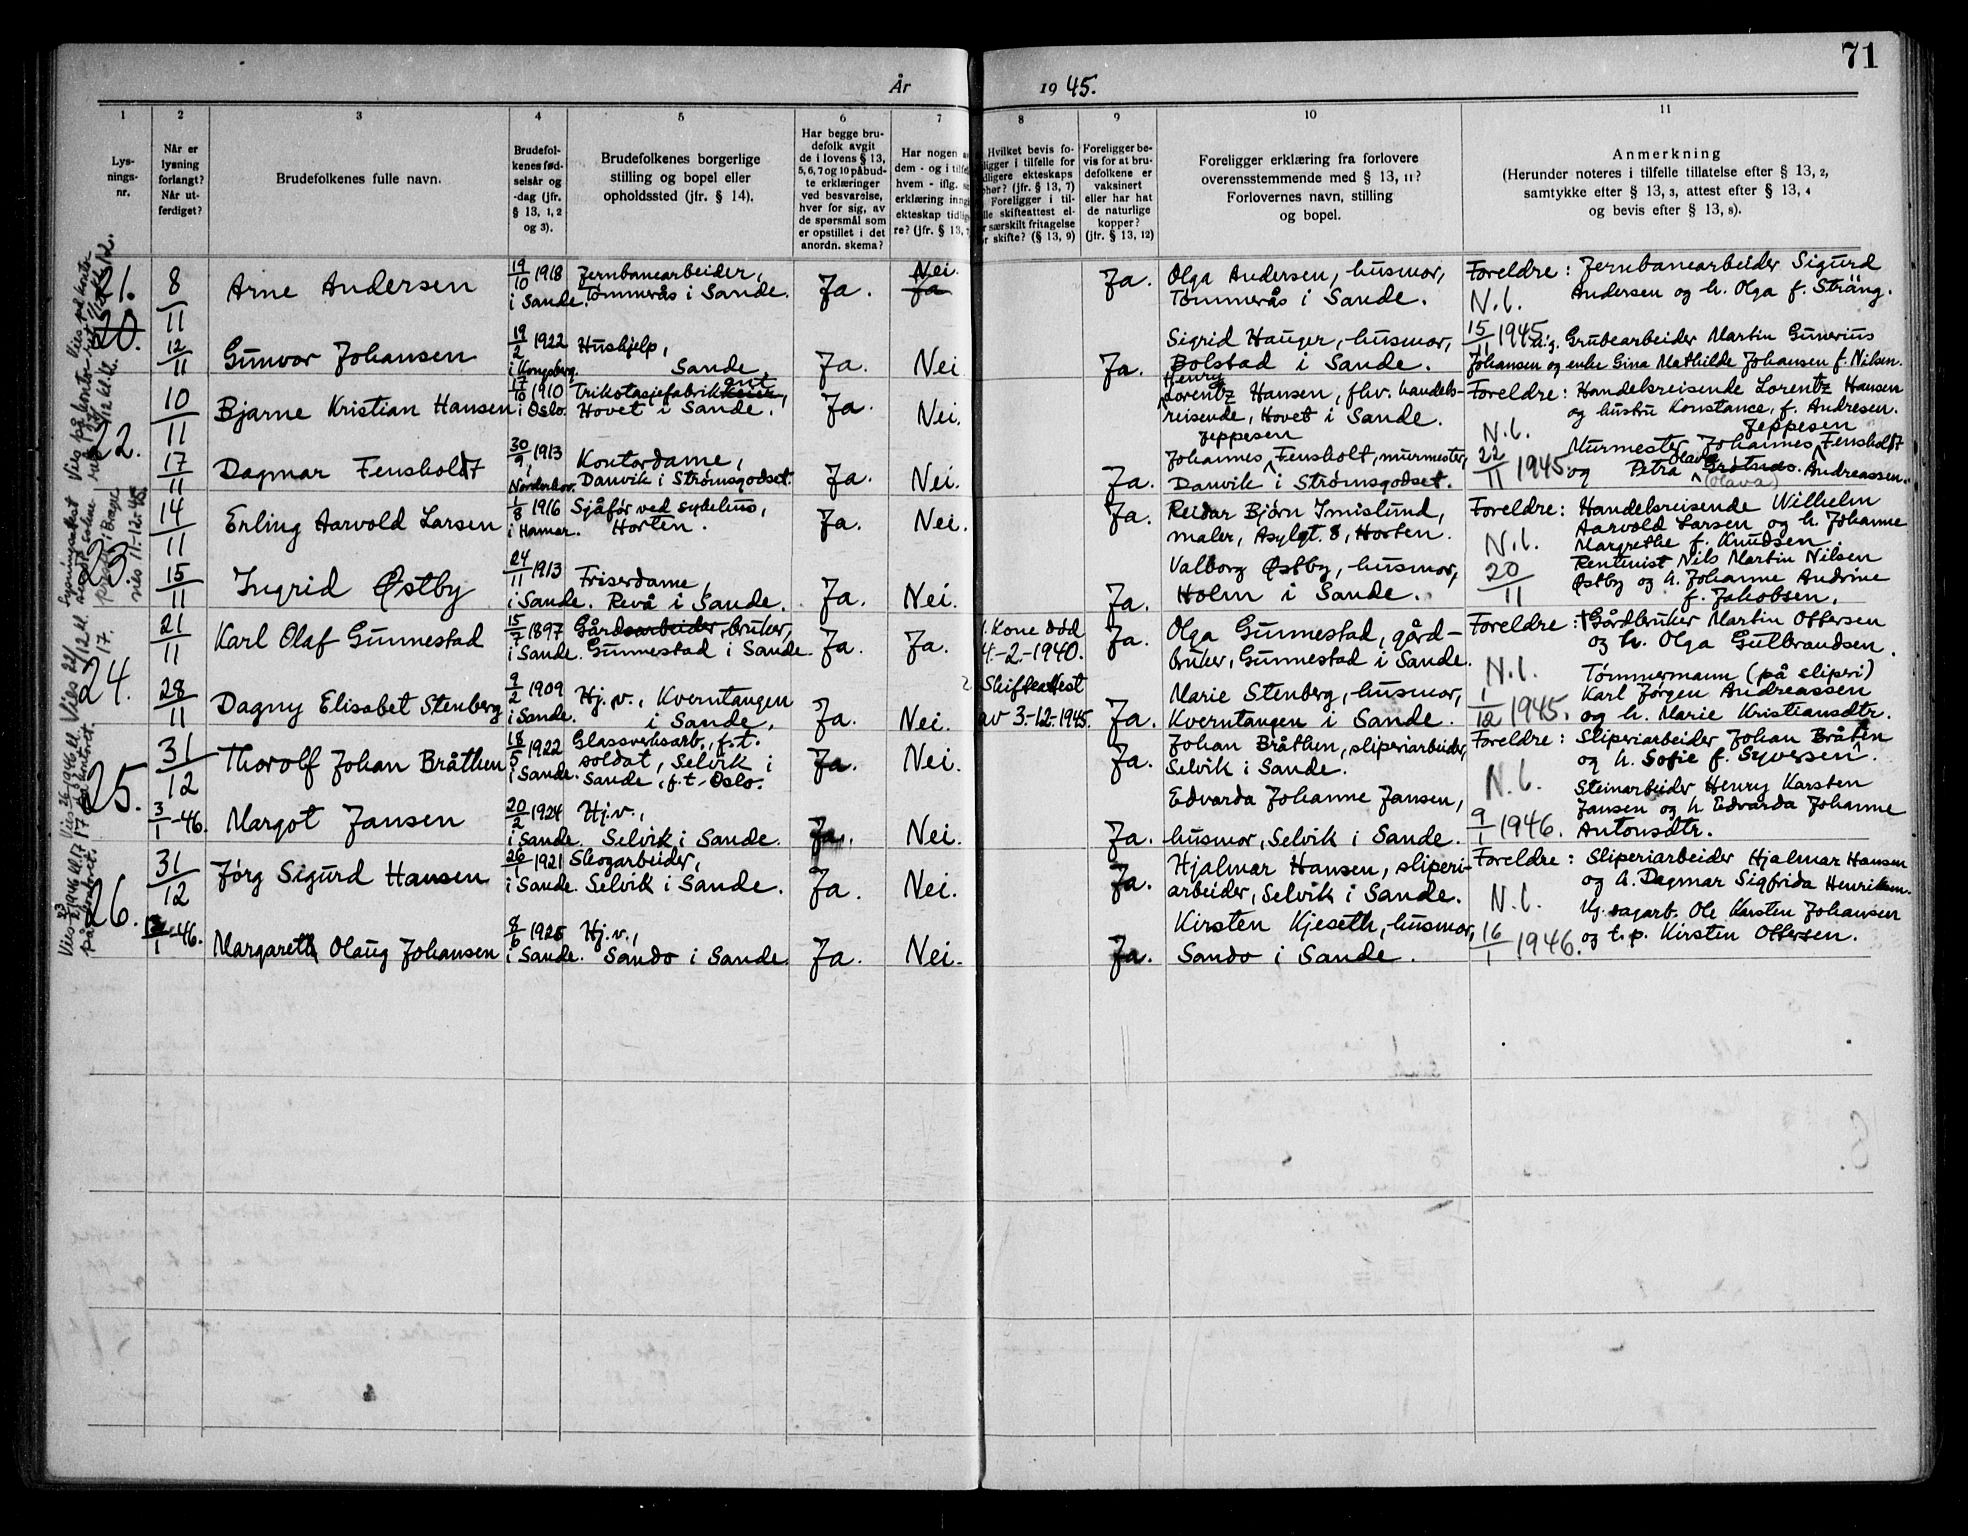 71
År 1945.
1
Lys-
nings-
nr.
2
Når er
lysning
forlangt?
Når ut-
ferdiget?
3
Brudefolkenes fulle navn.
4
Brudefol-
kenes fød-
selsår og
-dag (jfr.
§ 13, 1, 2
og 3).
5
Brudefolkenes borgerlige
stilling og bopel eller
opholdssted (jfr. § 14).
6
Har begge bru-
defolk avgit
de i lovens § 13,
5, 6, 7 og 10 påbud-
te erklæringer
ved besvarelse,
hver for sig, av
de spørsmål som
er opstillet i det
anordn. skema?
7
Har nogen a
dem - og i tilfe
hvem - iflg. s
erklæring inng
ekteskap tidlig
re? (jfr. § 13, 7
8
Hvilket bevis fo-
ligger i tilfelle for
dligere ekteskaps
phør? (jfr. § 13, 7)
Foreligger i til-
lle skifteattest el-
r særskilt fritagelse
or skifte? (§ 13, 9)
9
Foreligger be-
vis for at bru-
defolkene er
vaksinert
eller har hat
de naturlige
kopper?
(jfr. § 13, 12)
10
Foreligger erklæring fra forlovere
overensstemmende med § 13, 11?
Forlovernes navn, stilling
og bopel.
11
Anmerkning
(Herunder noteres i tilfelle tillatelse efter § 13, 2,
samtykke efter § 13, 3, attest efter § 13, 4
og bevis efter § 13, 8).
21.
20.
8/11
Arne Andersen
19/10 1918
i Sande.
Jernbanearbeider,
Tømmerås i Sande.
Ja.
Nei.
Ja
Ja.
Olga Andersen, husmor,
Tømmerås i Sande.
Foreldre: Jernbanearbeider Sigurd
Andersen og h. Olga f. Sträng.
N.l.
15/11 1945
12/11
Gunvor Johansen
19/2 1922
i Kongsberg.
Hushjelp,
Sande.
Ja.
Nei
Ja.
Sigrid Hauger, husmor,
Bolstad i Sande.
Grubearbeider Martin Gunerius
Johansen og enke Gina Mathilde Johansen f. Nilsen.
22.
10/11
Bjarne Kristian Hansen
17/10 1910
i Oslo.
Trikotasjefabrik
Hovet i Sande.
Ja.
Nei.
Henry
Lorentz Hansen, fhv. handels-
reisende, Hovet i Sande.
Foreldre: Handelsreisende Lorentz Hansen
og hustru Konstance, f. Andresen.
N.l.
22/11 1945
17/11
Dagmar Fensholdt
30/9 1913
Norderhov.
Kontordame,
Danvik i Strømsgodset.
Ja.
Nei.
Ja.
Jeppesen
Johannes Fensholt, murmester,
Danvik i Strømsgodset.
Jeppesen
Murmester Johannes Fensholdt
Olava
og Petra Grøtnds. Andreassen.
(Olava)
23.
14/11
Erling Aarvold Larsen
1/8 1916
i Hamar.
Sjåfør ved sykehus,
Horten.
Ja.
Nei.
Ja.
Reidar Bjørn Imislund,
maler, Asylgt. 8, Horten.
Foreldre: Handelsreisende Wilhelm
Aarvold Larsen og h. Johanne
Margrethe f. Knudsen.
N.l.
20/11
15/11
Ingrid Østby
24/11 1913
i Sande.
Friserdame,
Revå i Sande.
Ja.
Nei.
Ja.
Valborg Østby, husmor,
Holm i Sande.
Rentenist Nils Martin Nilsen
Østby og h. Johanne Andrine
f. Jakobsen.
24.
21/11
Karl Olaf Gunnestad
15/7 1897
i Sande.
Gårdsarbeider, bruker,
Gunnestad i Sande.
Ja.
Ja.
1. Kone død
4.-2.-1940.
Ja.
Olga Gunnestad, gård-
bruker, Gunnestad i Sande.
Foreldre: †Gårdbruker Martin Ottersen
og h. Olga Gulbrandsen.
N.l.
1/12 1945.
28/11
Dagny Elisabet Stenberg
9/2 1909
i Sande.
Hj. v., Kverntangen
i Sande,
Ja.
Nei.
2. Skifteattest
av 3.-12.-1945.
Ja.
Marie Stenberg, husmor,
Kverntangen i Sande.
Tømmermann (på sliperi)
Karl Jørgen Andreassen
og h. Marie Kristiansdtr.
25.
31/12
Thorolf Johan Bråthen
18/5 1922
i Sande.
Glassverksarb., f.t.
soldat, Selvik i
Sande, f.t. Oslo.
Ja.
Nei.
Ja.
Johan Bråthen, sliperiarbeider,
Selvik i Sande.
Foreldre: Sliperiarbeider Johan Bråten
og h. Sofie f. Syversen.
N.l.
9/1 1946.
3/1-46.
Margot Jansen
20/2 1924
i Sande.
Hj.v.,
Selvik i Sande.
Ja.
Nei.
Ja.
Edvarda Johanne Jansen,
husmor, Selvik i Sande.
Steinarbeider Henry Karsten
Jansen og h Edvarda Johanne
Antonsdtr.
26.
31/12
Jørg Sigurd Hansen
26/1 1921
i Sande.
Skogarbeider,
Selvik i Sande.
Ja.
Nei.
Ja.
Hjalmar Hansen, sliperi-
arbeider, Selvik i Sande.
Foreldre: Sliperiarbeider Hjalmar Hansen
og h. Dagmar Sigfrida Henriksen.
N.l.
16/1 1946.
/1-46.
Margareth Olaug Johansen
8/6 1925
i Sande.
Hj.v.,
Sando i Sande.
Ja.
Nei.
Ja.
Kirsten Kjeseth, husmor,
Sando i Sande.
Ug. sagarb. Ole Karsten Johansen
og t.p. Kirsten Ottersen.